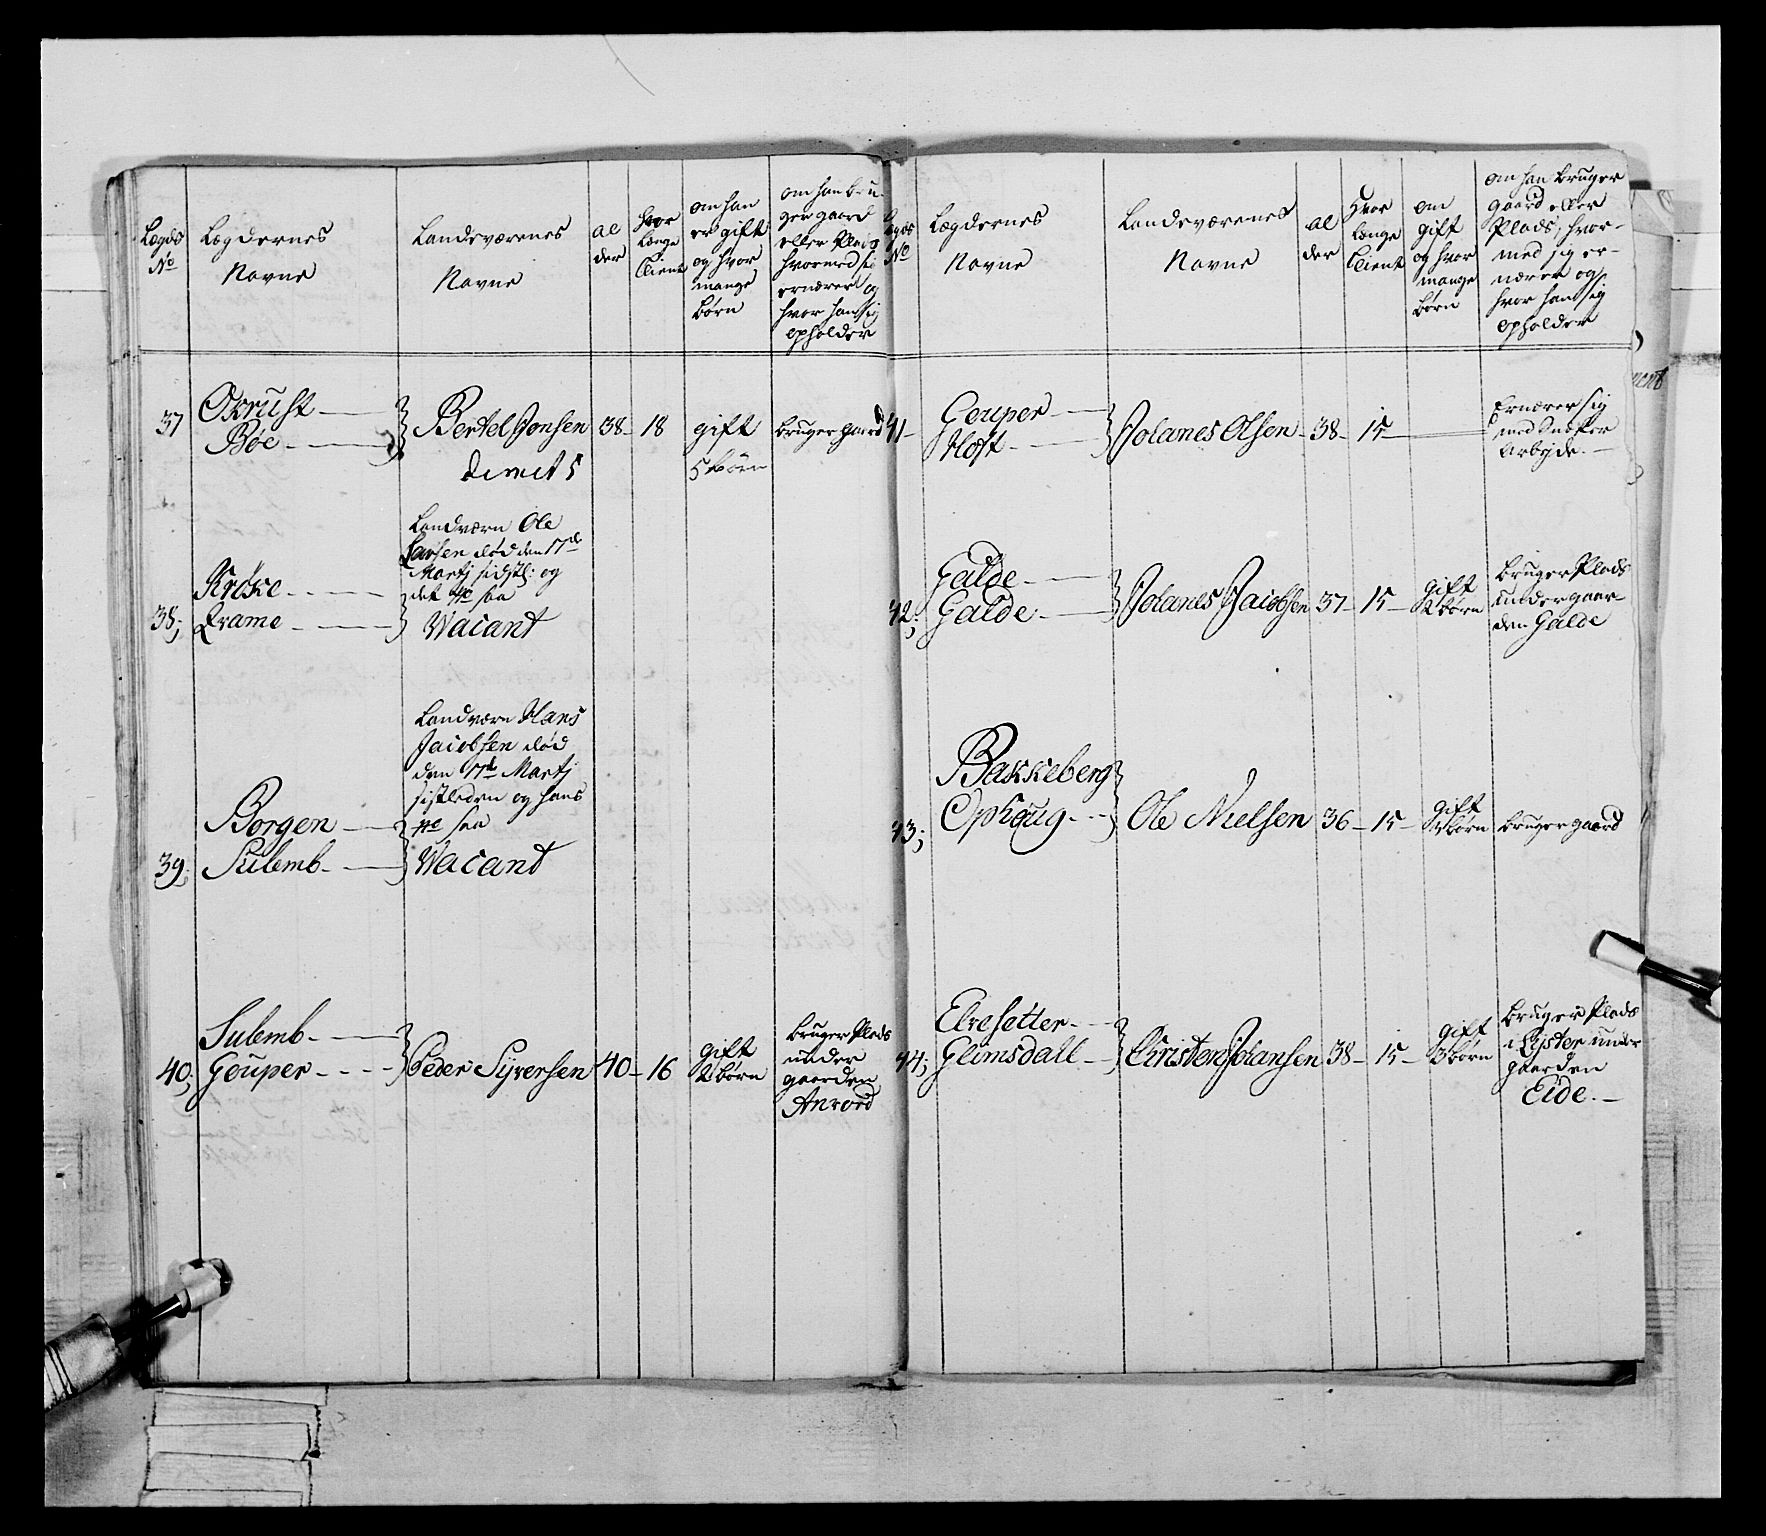 Lægds
No
Lægdernes
Navne
Landeværenes
Navne
al
der
Hvor
længe
tient
om han
er gift
og hvor
mange
børn
om han bru-
ger gaard
eller Plads
hvormed sig
ernærer og
hvor han sig
opholder
37
Qvrust
Bøe
Bertel Jonsen
dimit
38
18
gift
5 børn
bruger gaard
38;
Krøke
Frame
Landværn Ole
Larsen død den 17de
Martj sidstl: og
det No saa
Wacant
39;
Borgen
Sulemb
Landværn Hans
Jacobsen død
den 17de Martj
sistleden og hans
No saa
Wacant
40;
Sulemb
Geuper
Peder Syversen
40
16
gift
2 børn
bruger Plads
under
gaarden
Anvord
Lægds
No
Lægdernes
Navne
Landeværenes
Navne
al
der
Hvor
længe
tient
om
gift
og hvor
mange
børn
om han bruger
gaard eller
Plads, hvor-
med sig er-
nærer og
hvor han sig
opholder
41
Geuper
Høft
Johanes Olsen
38
15
Ernærer sig
med Sneker
Arbyde.
42;
Galde
Galde
Johanes Jacobsen
37
15
gift
2 børn
bruger Plads
under gaar-
den Galde
43;
Bakkeberg
Ophoug
Ole Nielsen
36
15
gift
børn
bruger gaard
44;
Elvesetter
Glimsdall
Christen Johansen
38
15
gift
3 børn
bruger Plads
i Lyster under
gaarden
Eide.